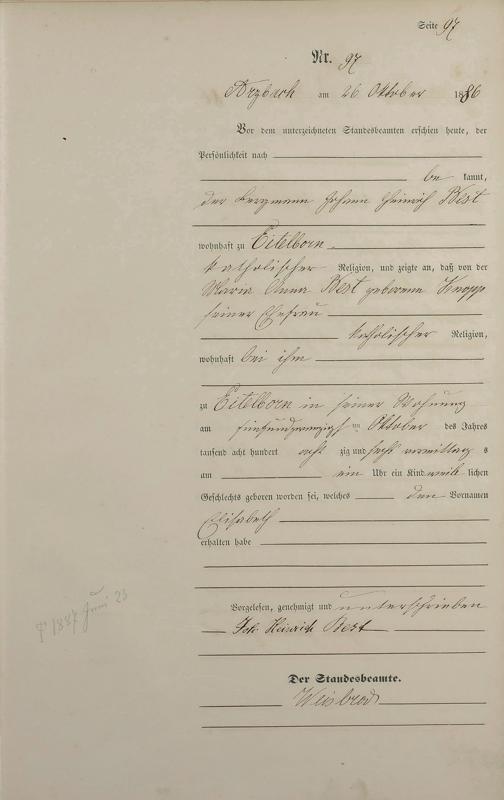 Seite 97
Nr. 97
Arzbach am 26 Oktober 1886
Vor dem unterzeichneten Standesbeamten erschien heute, der
Persönlichkeit nach
be kannt,
der Bergmann Johann Heinrich Best
wohnhaft zu Eitelborn
katholischer Religion, und zeigte an, daß von der
Maria Anna Best geborene Knopp
seiner Ehefrau
katholischer Religion,
wohnhaft bei ihm
zu Eitelborn in seiner Wohnung
am fünfundzwanzigsten Oktober des Jahres
tausend acht hundert acht zig und sechs vormittag s
um ein Uhr ein Kind weib lichen
Geschlechts geboren worden sei, welches den Vornamen
Elisabeth
erhalten habe
† 1887 Juni 23
Vorgelesen, genehmigt und unterschrieben
Joh. Heinrich Best
Der Standesbeamte.
Weisbrod